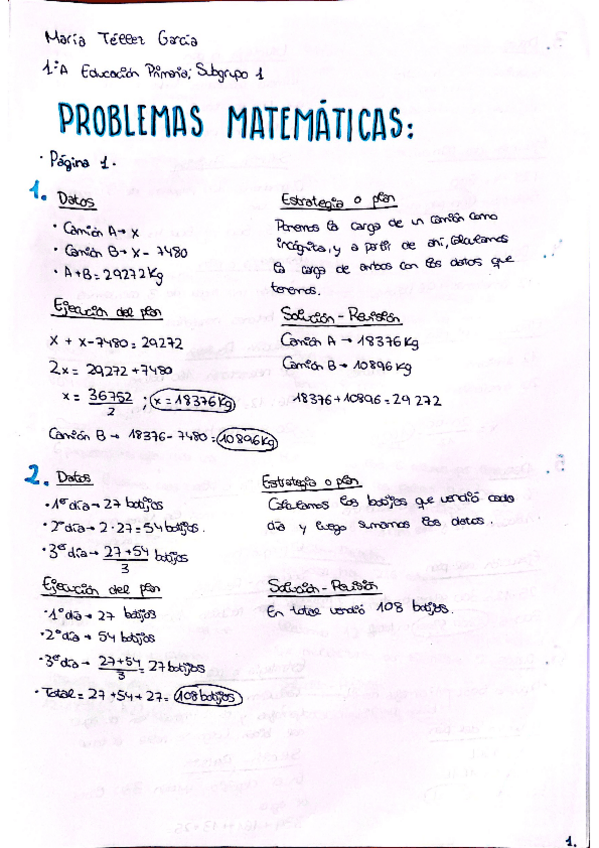 María Téllez García
1.ºA Educación Primaria; Subgrupo 1
PROBLEMAS MATEMÁTICAS:
· Página 1.
1. Datos
· Camión A → x
· Camión B → x - 7480
· A+B = 29272 Kg
Estrategia o plan
Ponemos la carga de un camión como
incógnita, y a partir de ahí, calculamos
la carga de ambos con los datos que
tenemos.
Ejecución del plan
x + x-7480 = 29272
2x = 29272 + 7480
x = 36752/2 ; x = 18376 Kg
Camión B → 18376 - 7480 = 10896 Kg
Solución - Revisión
Camión A → 18376 Kg
Camión B → 10896 Kg
18376 + 10896 = 29 272
2. Datos
· 1er día → 27 botijos
· 2º día → 2 · 27 = 54 botijos.
· 3er día → 27+54/3 botijos
Estrategia o plan
Calculamos los botijos que vendió cada
día y luego sumamos los datos.
Ejecución del plan
· 1º día → 27 botijos
· 2º día → 54 botijos
· 3er día → 27+54/3 = 27 botijos
· Total = 27 + 54 + 27 = 108 botijos
Solución - Revisión
En total vendió 108 botijos.
1.